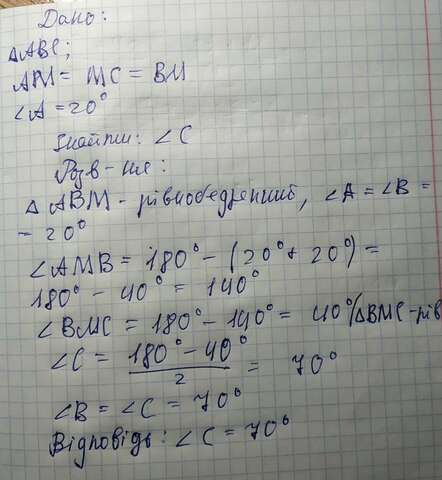 Дано:
△ABC;
AM = MC = BM
∠A = 20°
Знайти: ∠C
Розв-ня:
△ ABM - рівнобедренний, ∠A = ∠B =
= 20°
∠AMB = 180° - (20° + 20°) =
180° - 40° = 140°
∠BMC = 180° - 140° = 40°/△BMC-рів
∠C = (180° - 40°)/2 = 70°
∠B = ∠C = 70°
Відповідь: ∠C = 70°